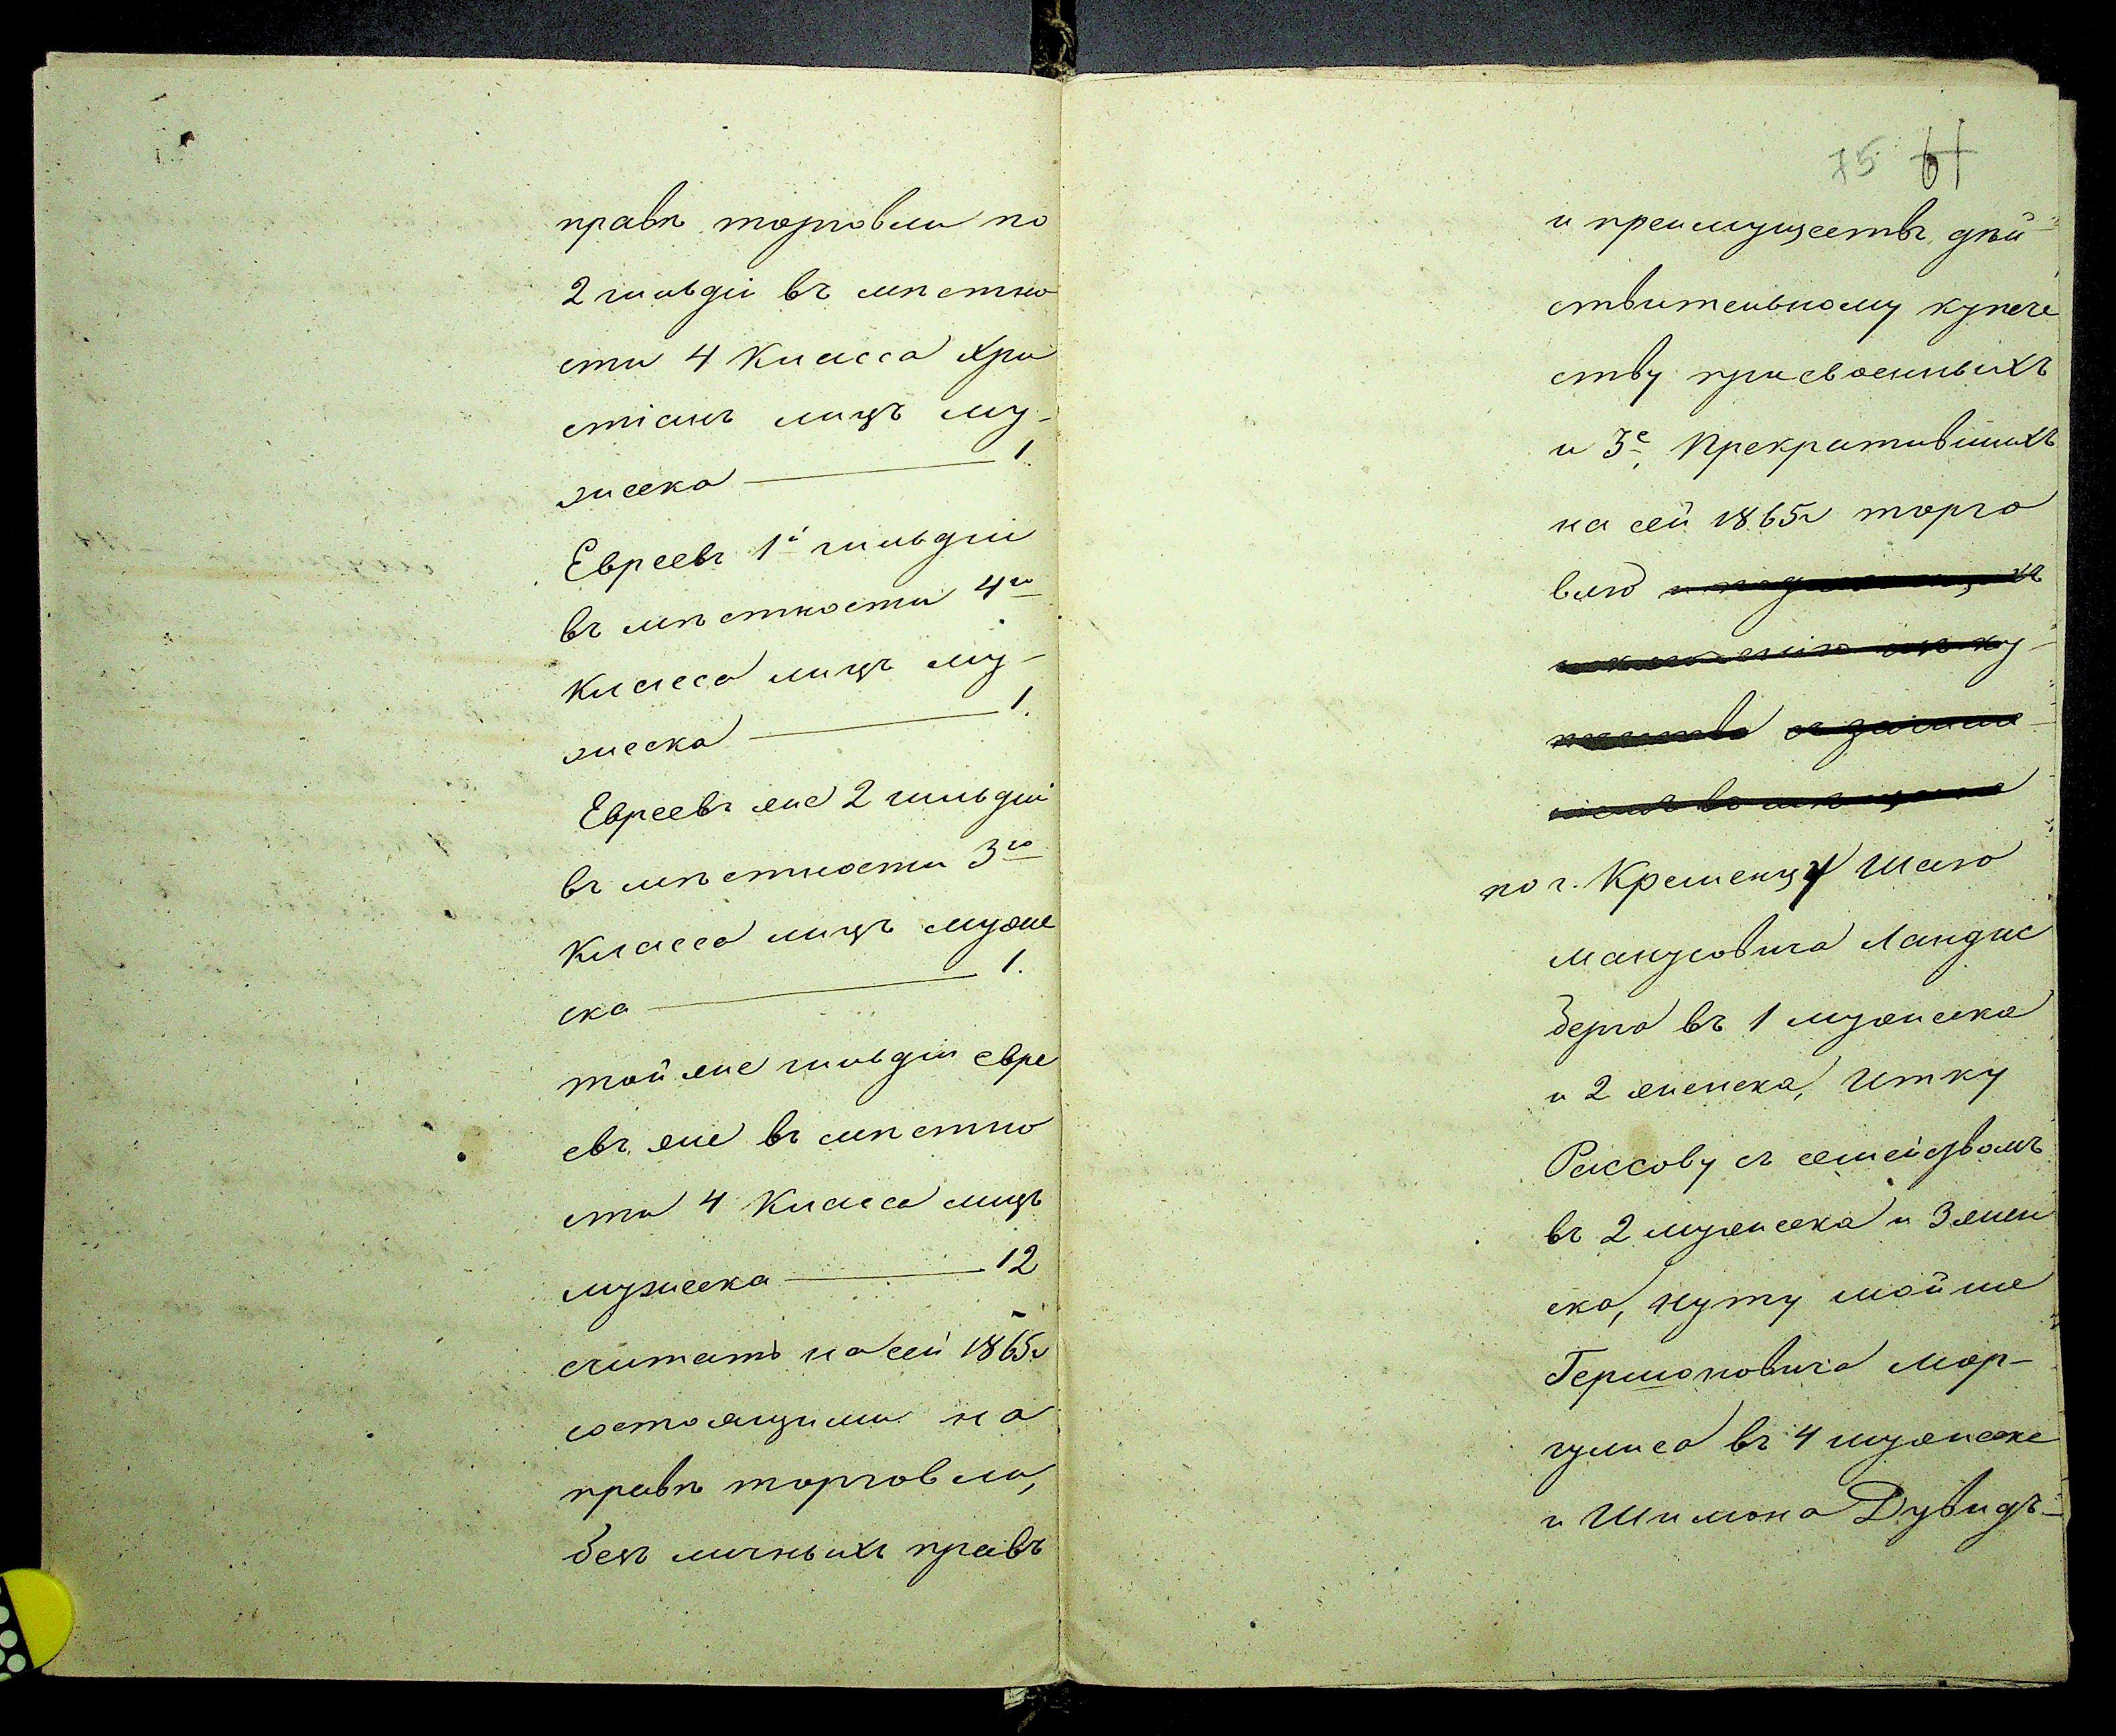 правѣ торговли по
2 гильдіи въ мѣстно
сти 4 Класса Хри
стіанъ лицъ му-
жеска — 1.
Евреевъ 1й гильдіи
въ мѣстности 4го
Класса лицъ му-
жеска — 1.
Евреевъ же 2 гильдіи
въ мѣстности 3го
Класса лицъ муже
ска — 1.
той же гильдіи евре
евъ же въ мѣстно
сти 4 Класса лицъ
мужеска — 12
считать на сей 1865г
состоящими на
правѣ торговли,
безъ личныхъ правъ
75 61
и преимуществъ дѣй
ствительному купече
ству присвоенныхъ
и 3е, Прекратившихъ
на сей 1865г торго
влю
по г. Кременцу Шаю
Манусовича Ландис
берга въ 1 мужеска
и 2 женска, Итку
Рассову съ семействомъ
въ 2 мужеска и 3 жен
ска, Нуту Мойше
Гершоновича Мар-
гулиса въ 4 мужеске
и Шимона Дувидъ-